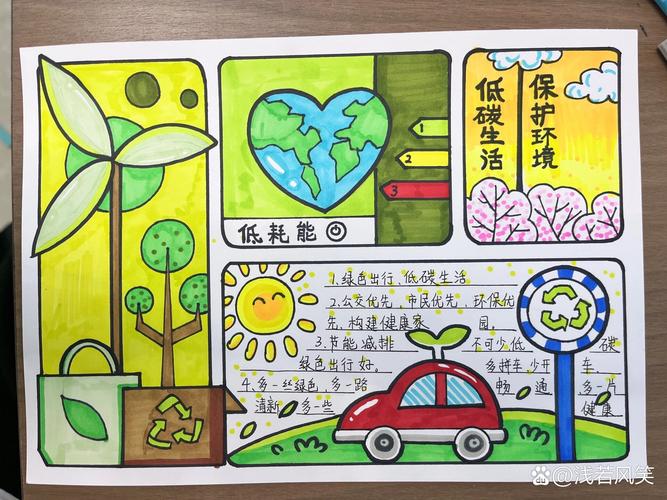 1
2
3
低耗能
低碳生活
保护环境
1.绿色出行、低碳生活
2.公交优先，市民优先，环保优
先，构建健康家 园。
3.节能减排 不可少低 碳
绿色出行好， 多拼车，少开 车
4.多一丝绿色，多一路 畅 通 多一片
清新 多一些 健康
Bai度 @浅若风笑